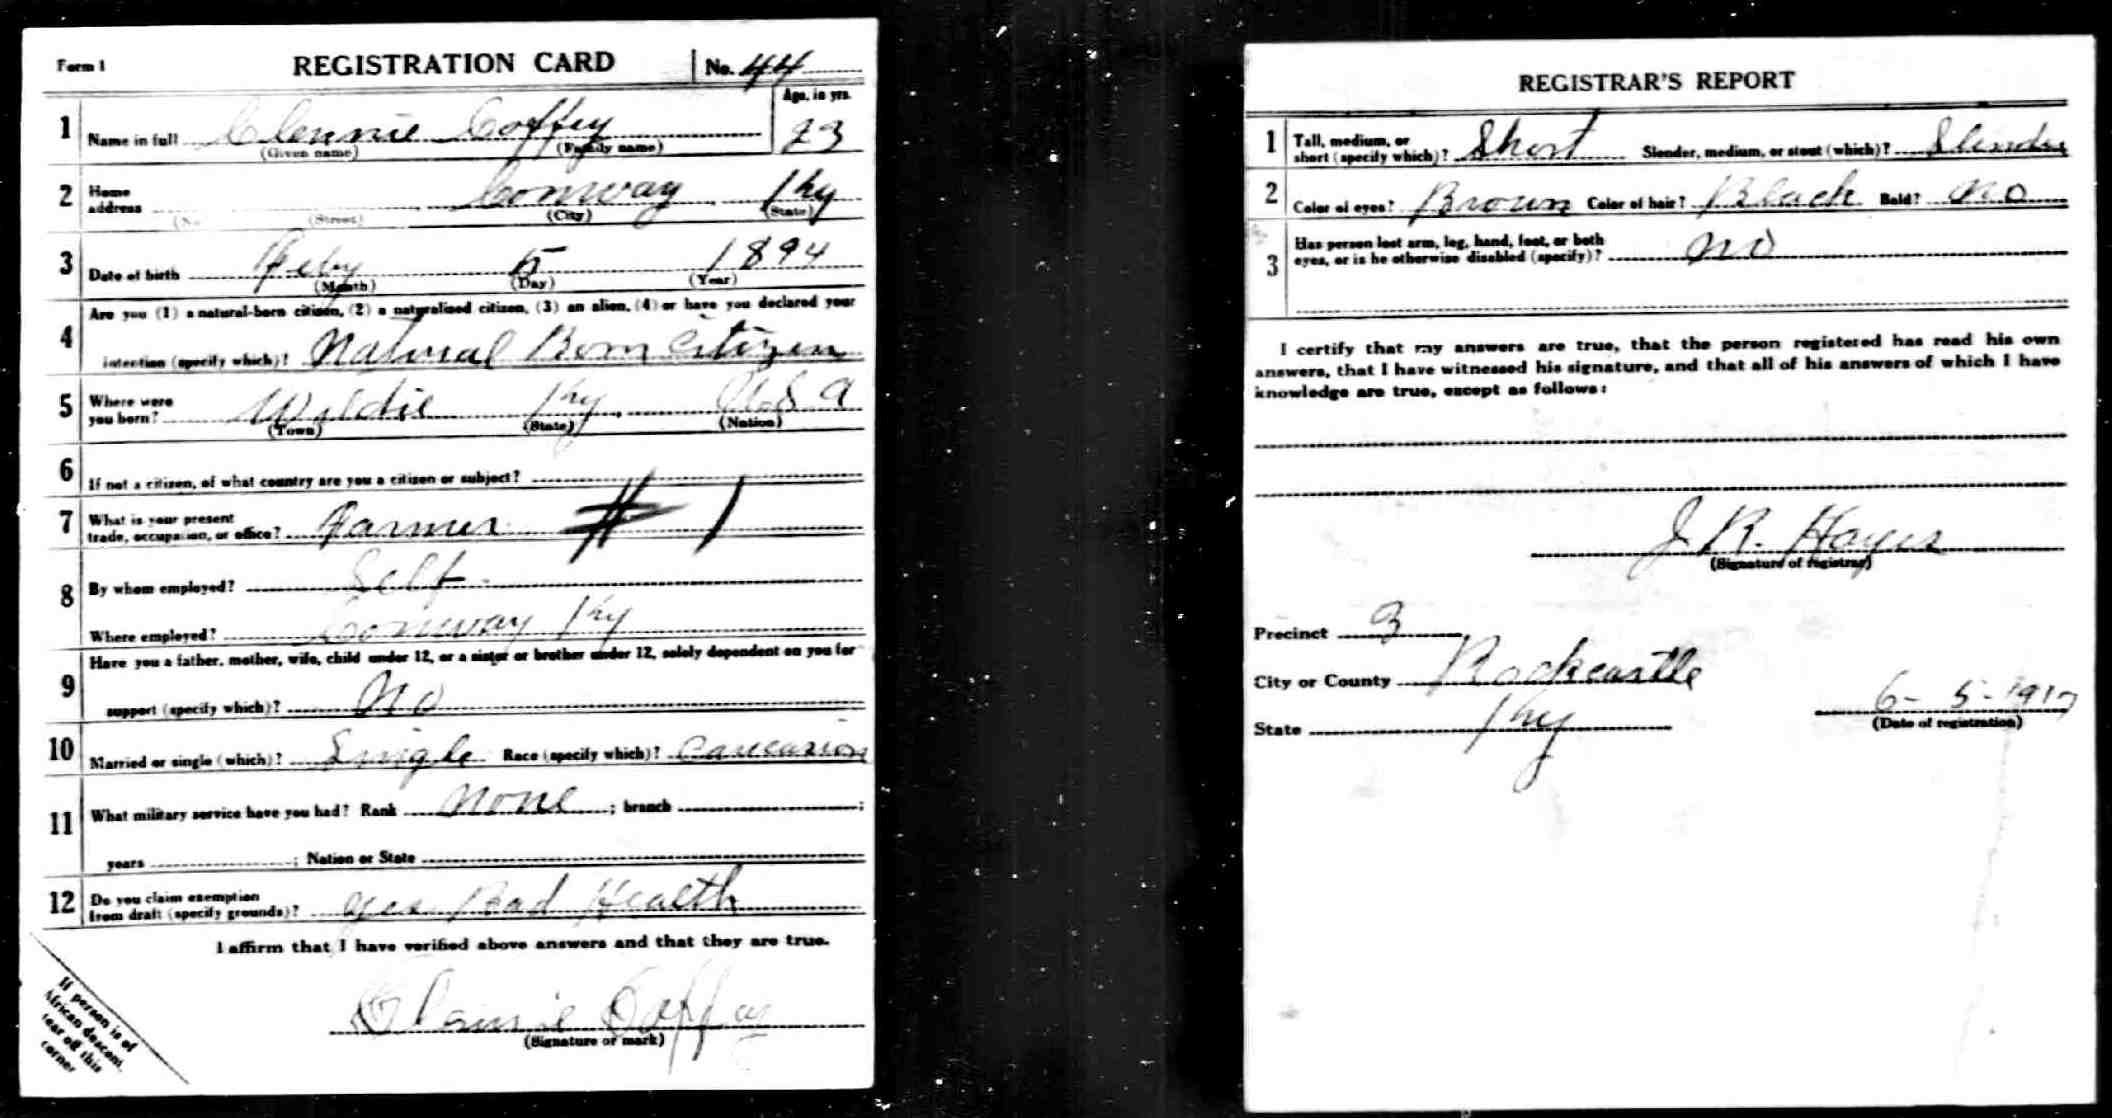 Form 1 REGISTRATION CARD No. 44
1 Name in full Clennie Coffey Age, in yrs. 23
(Given name) (Family name)
2 Home address Conway Ky
(No.) (Street) (City) (State)
3 Date of birth Feby 5 1894
(Month) (Day) (Year)
4 Are you (1) a natural-born citizen, (2) a naturalized citizen, (3) an alien, (4) or have you declared your
intention (specify which)? Natural Born Citizen
5 Where were you born? Wildie Ky. U.S a
(Town) (State) (Nation)
6 If not a citizen, of what country are you a citizen or subject?
7 What is your present trade, occupation, or office? Farmer # 1
8 By whom employed? Self
Where employed? Conway Ky
9 Have you a father, mother, wife, child under 12, or a sister or brother under 12, solely dependent on you for
support (specify which)? No
10 Married or single (which)? Single Race (specify which)? Caucasion
11 What military service have you had? Rank None ; branch ;
years ; Nation or State
12 Do you claim exemption from draft (specify grounds)? yes Bad Health
I affirm that I have verified above answers and that they are true.
Coffey
(Signature or mark)
If person is of
African descent,
tear off this
corner
REGISTRAR'S REPORT
1 Tall, medium, or short (specify which)? Short Slender, medium, or stout (which)? Slender
2 Color of eyes? Brown Color of hair? Black Bald? No
3 Has person lost arm, leg, hand, foot, or both
eyes, or is he otherwise disabled (specify)? No
I certify that my answers are true, that the person registered has read his own
answers, that I have witnessed his signature, and that all of his answers of which I have
knowledge are true, except as follows:
J. R. Hayes
(Signature of registrar)
Precinct 3
City or County Rockcastle
State Ky 6-5-1917
(Date of registration)